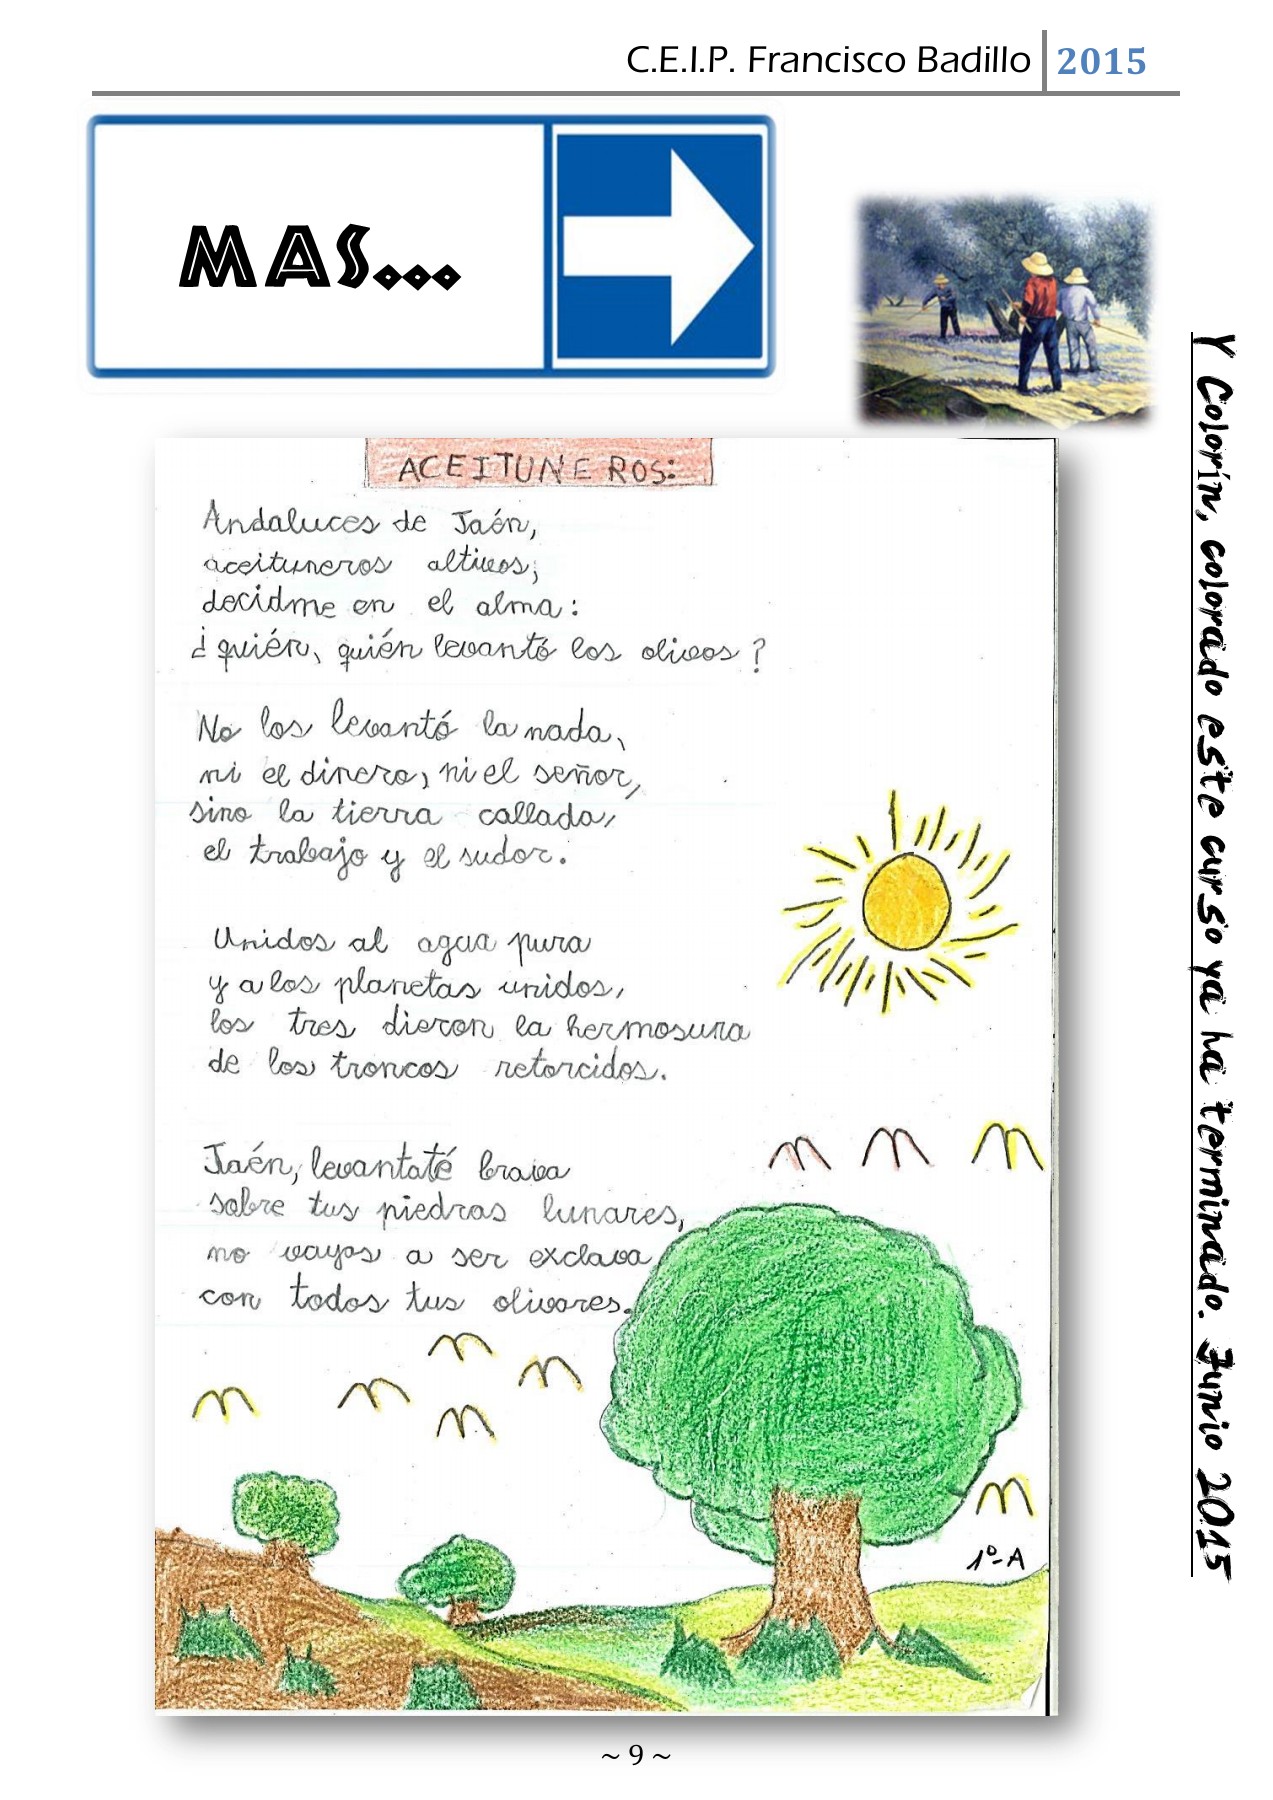 C.E.I.P. Francisco Badillo 2015
MAS...
ACEITUNEROS:
Andaluces de Jaén,
aceituneros altivos,
decidme en el alma:
¿quién, quién levantó los olivos?
No los levantó la nada,
ni el dinero, ni el señor,
sino la tierra callada,
el trabajo y el sudor.
Unidos al agua pura
y a los planetas unidos,
los tres dieron la hermosura
de los troncos retorcidos.
Jaén, levantaté brava
sobre tus piedras lunares,
no vayas a ser exclava
con todos tus olivares.
1º-A
Y Colorín, colorado este curso ya ha terminado. Junio 2015
~ 9 ~